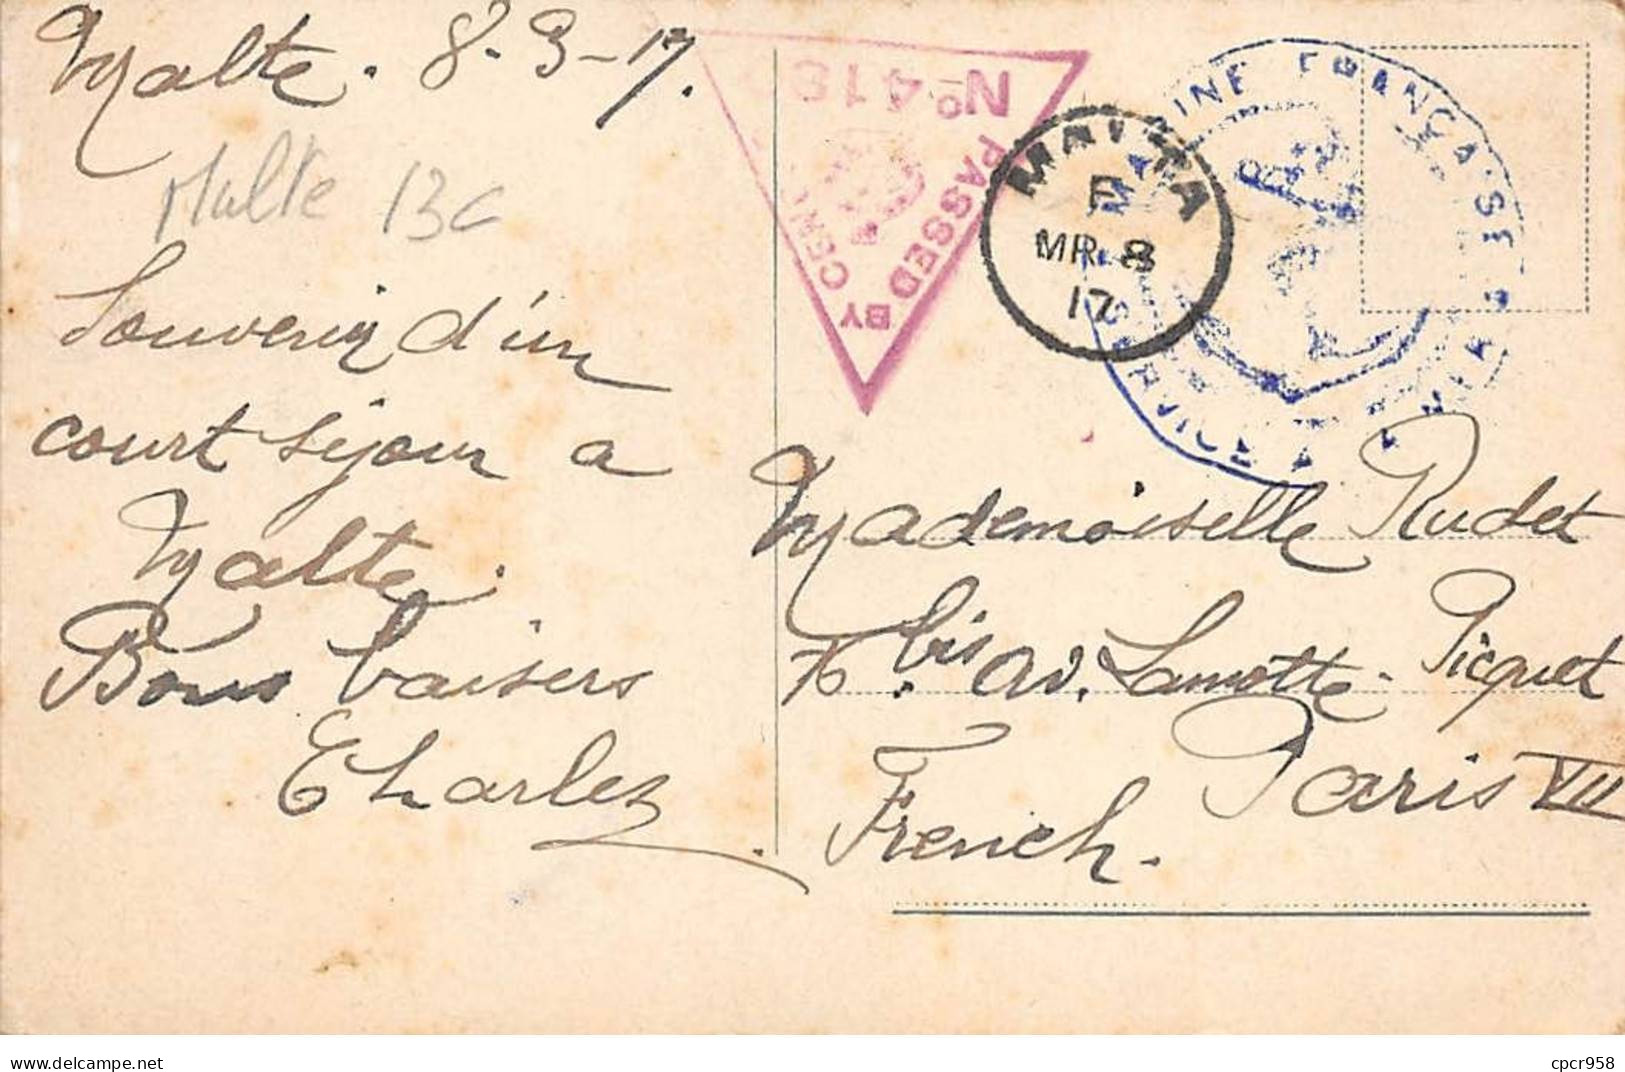 Malte. 8-3-17.
Malte 13c
Souvenir d'un
court séjour a
Malte.
Bons baisers
Charles
No 418
PASSED BY CEN
MALTA
MR 8
17
MARINE FRANÇAISE
Mademoiselle Rudet
76 bis av. Lamotte-Picquet
Paris VII
French.
delcampe.net
cpcr958